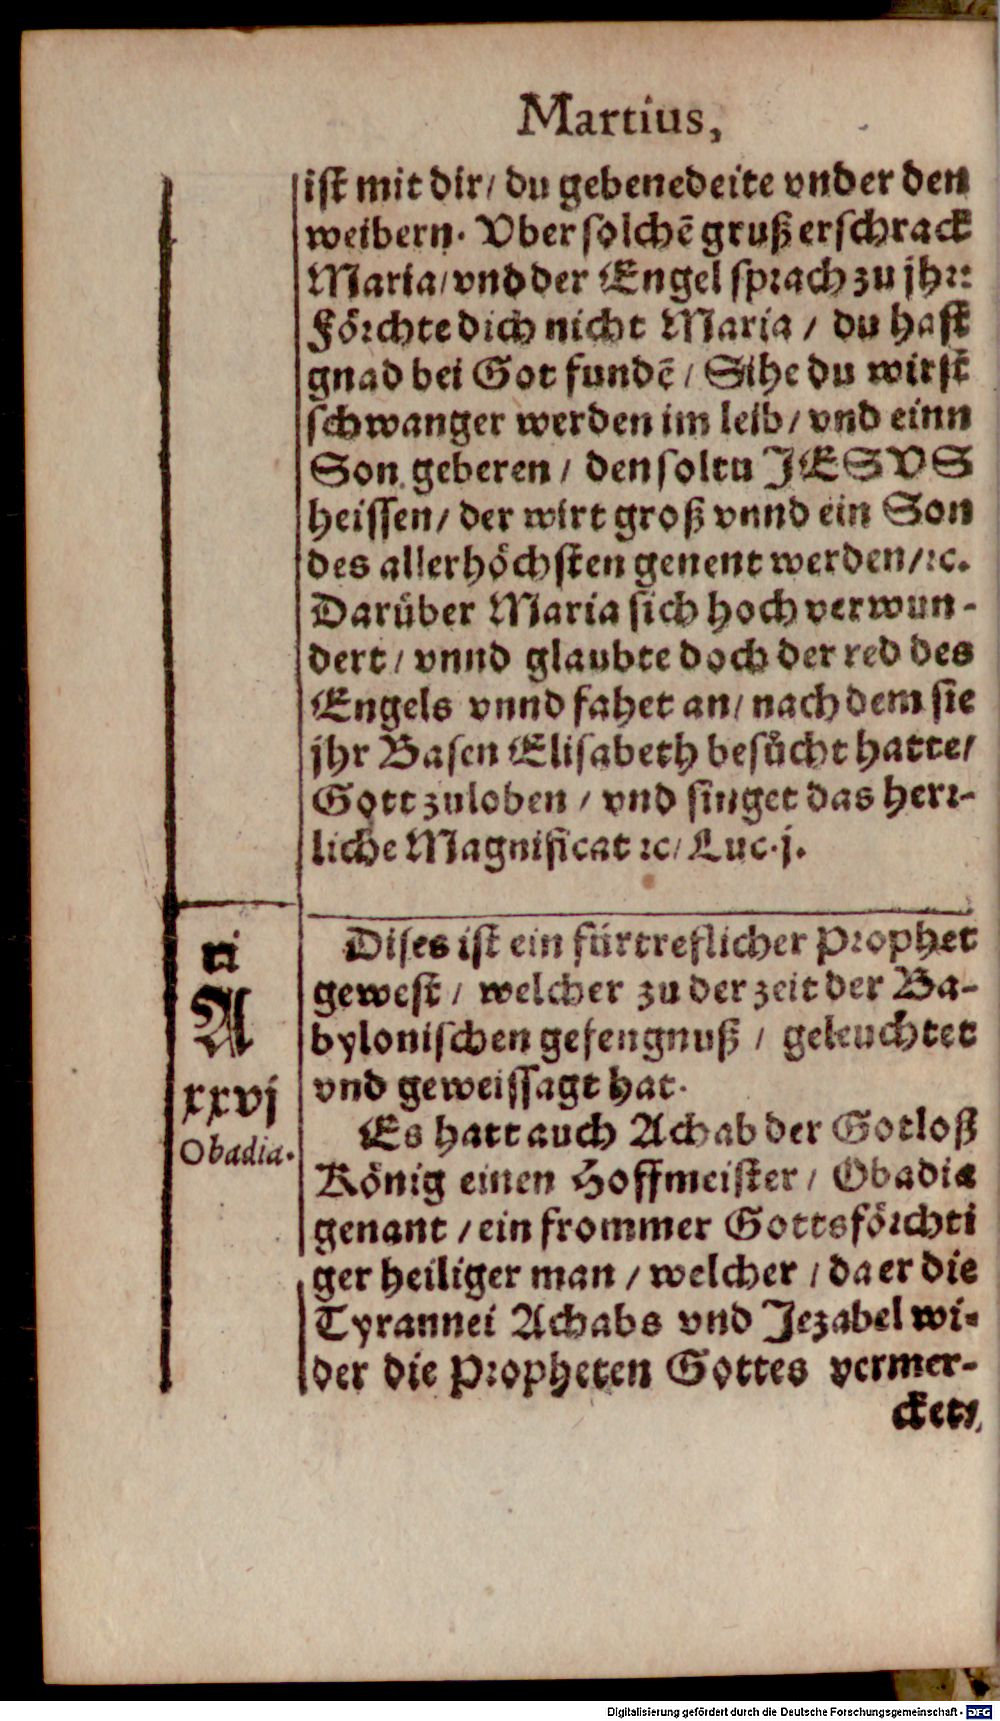 Martius,
ist mit dir/ du gebenedeite vnder den
weibern. Vber solchē gruß erschrack
Maria/ vnd der Engel sprach zu jhr:
Förchte dich nicht Maria / du hast
gnad bei Got fundē / Sihe du wirst
schwanger werden im leib / vnd einn
Son geberen / den soltu JESVS
heissen/ der wirt groß vnnd ein Son
des allerhöchsten genent werden/ ꝛc.
Darüber Maria sich hoch verwun-
dert / vnnd glaubte doch der red des
Engels vnnd fahet an/ nach dem sie
jhr Basen Elisabeth besůcht hatte/
Gott zuloben / vnd singet das herr-
liche Magnificat ꝛc/ Luc. j.
rj
A
xxvj
Obadia.
Dises ist ein fürtreflicher Prophet
gewest / welcher zu der zeit der Ba-
bylonischen gefengnuß / geleuchtet
vnd geweissagt hat.
Es hatt auch Achab der Gotloß
König einen Hoffmeister / Obadia
genant / ein frommer Gottsförchti
ger heiliger man / welcher / da er die
Tyrannei Achabs vnd Jezabel wi-
der die Propheten Gottes vermer-
ckets,
Digitalisierung gefördert durch die Deutsche Forschungsgemeinschaft - DFG